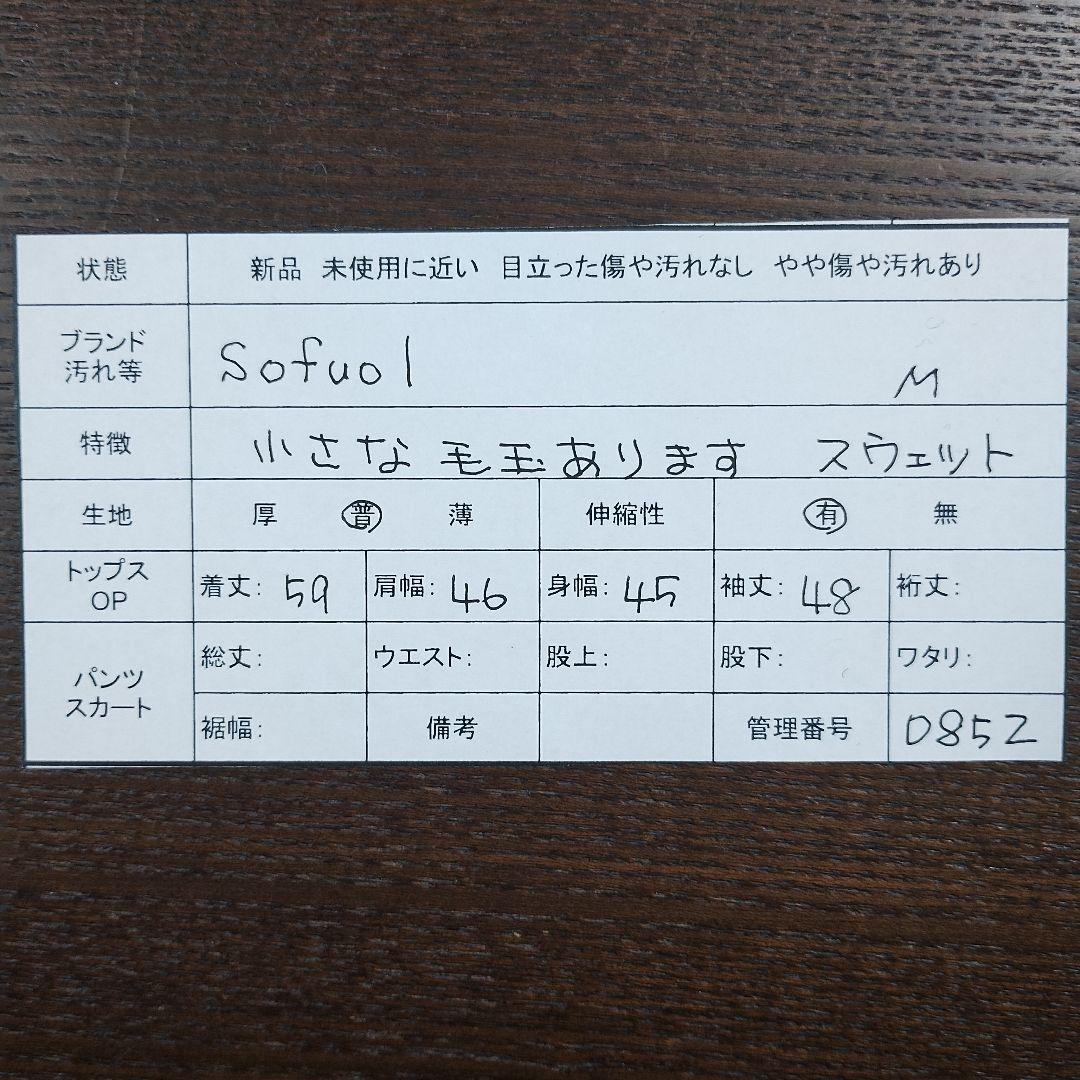 状態 新品 未使用に近い 目立った傷や汚れなし やや傷や汚れあり
ブランド
汚れ等 Sofuol M
特徴 小さな毛玉あります スウェット
生地 厚 普 薄 伸縮性 有 無
トップス
OP 着丈: 59 肩幅: 46 身幅: 45 袖丈: 48 裄丈:
パンツ
スカート 総丈: ウエスト: 股上: 股下: ワタリ:
裾幅: 備考 管理番号 0852